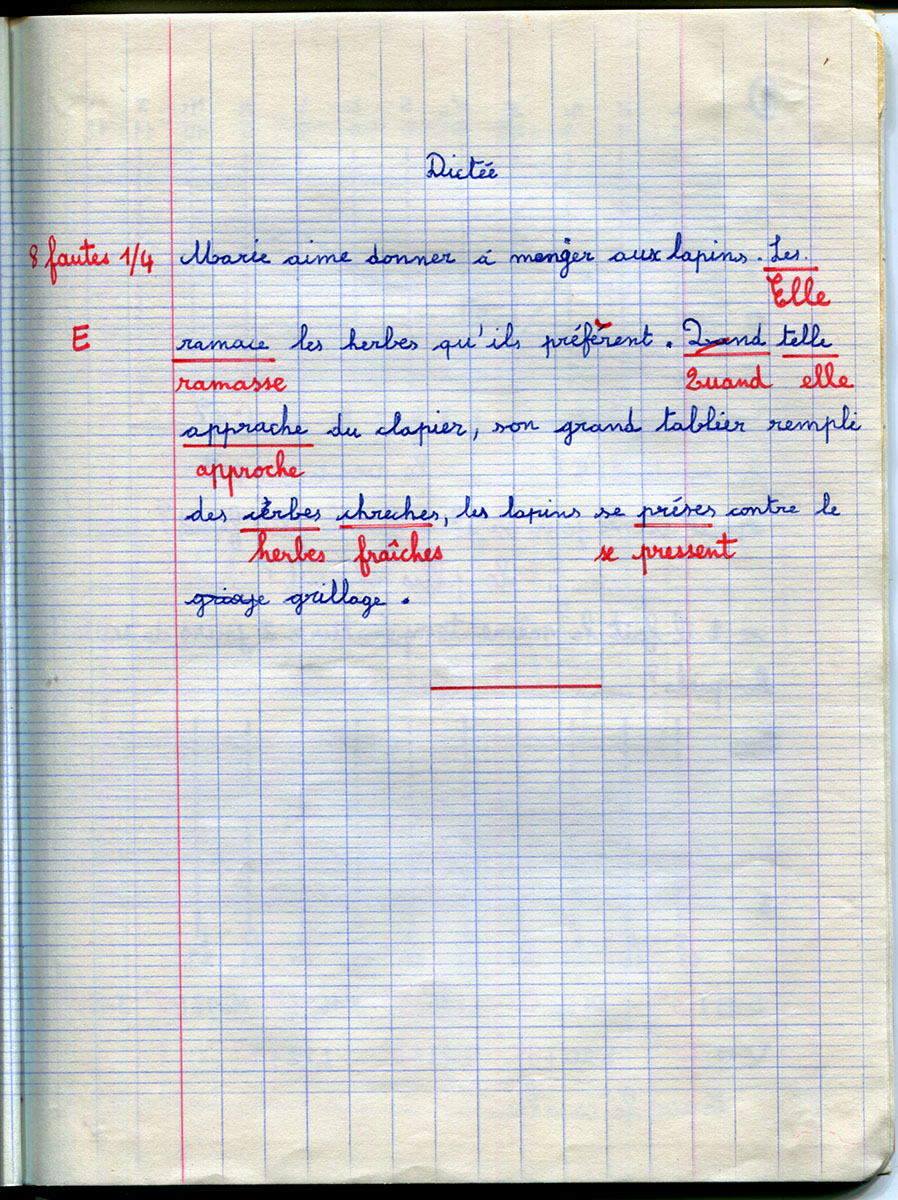 Dictée
8 fautes 1/4 Marie aime donner à manger aux lapins. Les
Elle
E ramace les herbes qu'ils préfèrent. Quand telle
ramasse Quand elle
apprache du clapier, son grand tablier rempli
approche
des èrbes chreches, les lapins se présés contre le
herbes fraîches se pressent
grillage.